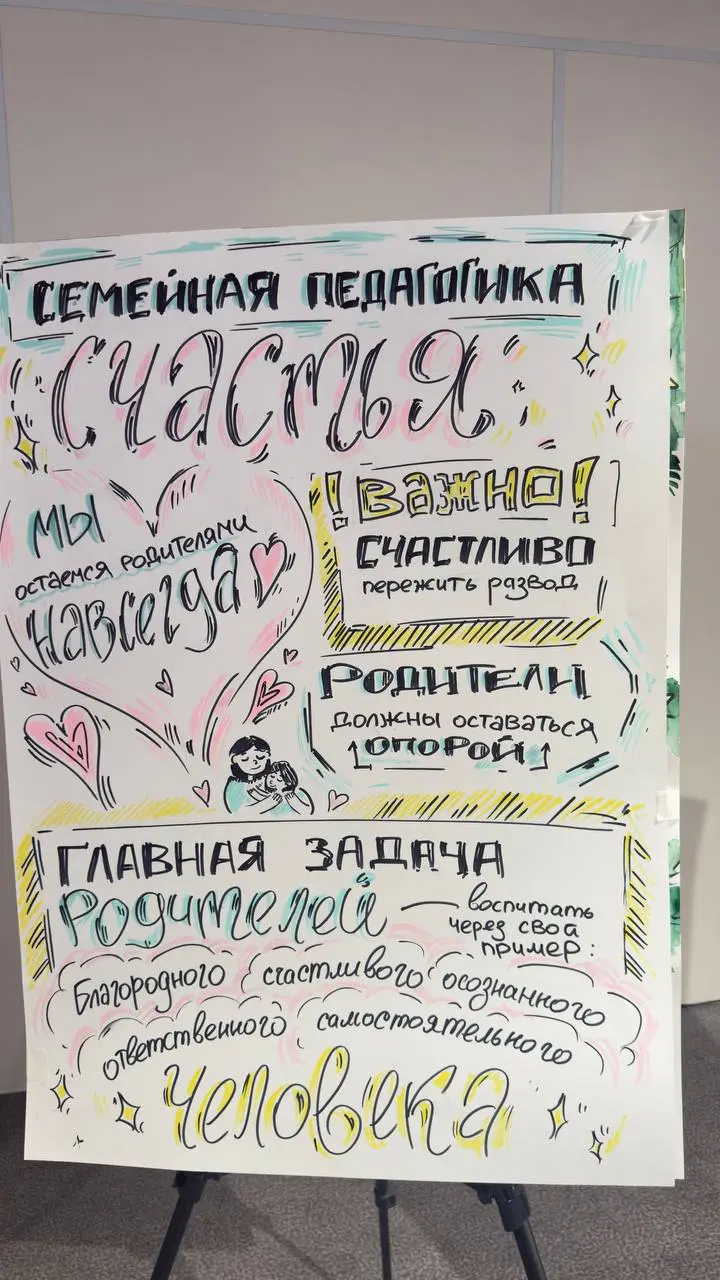 СЕМЕЙНАЯ ПЕДАГОГИКА
счастья
МЫ
остаемся родителями
навсегда
! важно!
СЧАСТЛИВО
пережить развод
РОДИТЕЛИ
должны оставаться
ОПОРОЙ
ГЛАВНАЯ ЗАДАЧА
Родителей — воспитать
через свой
пример:
Благородного счастливого осознанного
ответственного самостоятельного
человека